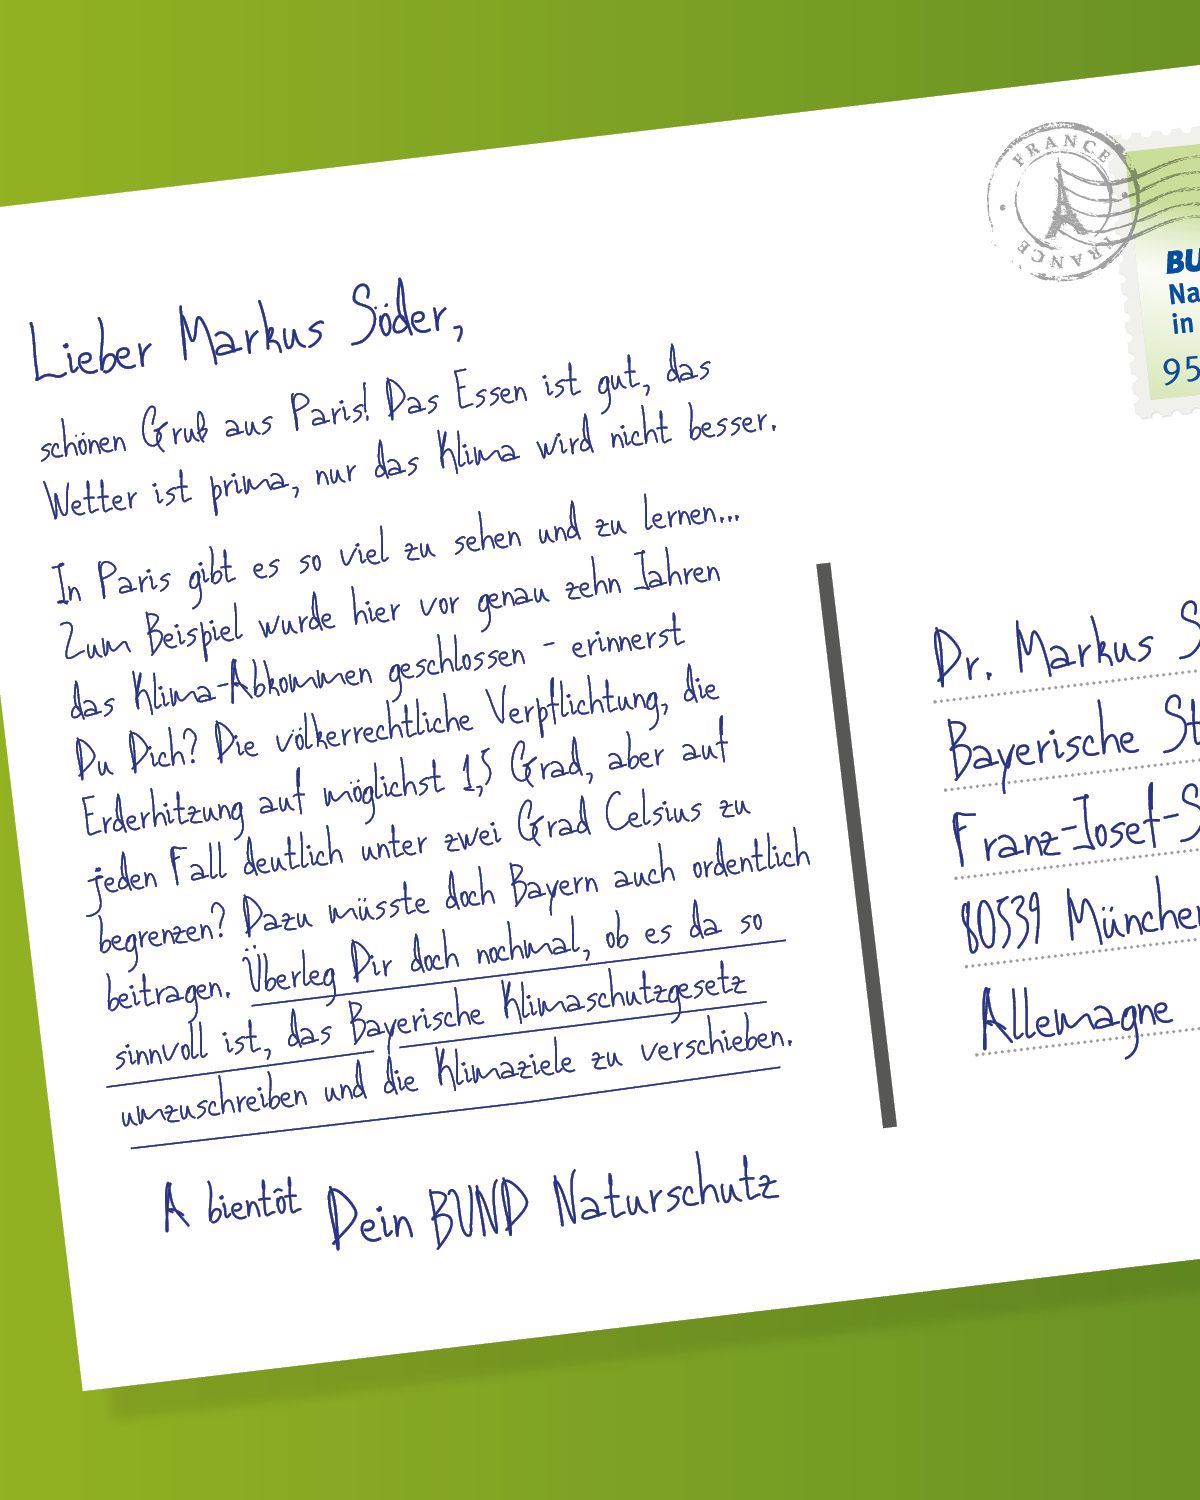 FRANCE
FRANCE
BU
Na
in
95
Lieber Markus Söder,
schönen Gruß aus Paris! Das Essen ist gut, das
Wetter ist prima, nur das Klima wird nicht besser.
In Paris gibt es so viel zu sehen und zu lernen...
Zum Beispiel wurde hier vor genau zehn Jahren
das Klima-Abkommen geschlossen - erinnerst
Du Dich? Die völkerrechtliche Verpflichtung, die
Erderhitzung auf möglichst 1,5 Grad, aber auf
jeden Fall deutlich unter zwei Grad Celsius zu
begrenzen? Dazu müsste doch Bayern auch ordentlich
beitragen. Überleg Dir doch nochmal, ob es da so
sinnvoll ist, das Bayerische Klimaschutzgesetz
umzuschreiben und die Klimaziele zu verschieben.
A bientôt Dein BUND Naturschutz
Dr. Markus S
Bayerische St
Franz-Josef-S
80539 München
Allemagne